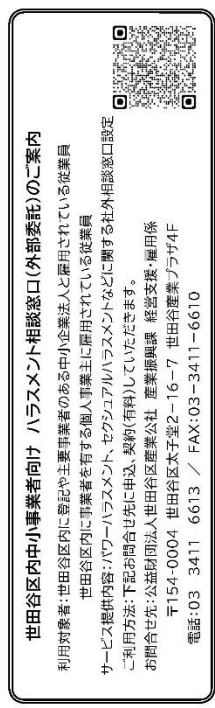 世田谷区内中小事業者向け　ハラスメント相談窓口(外部委託)のご案内
利用対象者：世田谷区内に登記や主要事業者のある中小企業法人と雇用されている従業員
世田谷区内に事業者を有する個人事業主に雇用されている従業員
サービス提供内容：パワーハラスメント、セクシュアルハラスメントなどに関する社外相談窓口設定
ご利用方法：下記お問合せ先に申込、契約(有料)していただきます。
お問合せ先：公益財団法人世田谷区産業公社　産業振興課　経営支援・雇用係
〒154-0004　世田谷区太子堂2－16－7　世田谷産業プラザ4F
電話：03　3411　6613　／　FAX：03－3411－6610